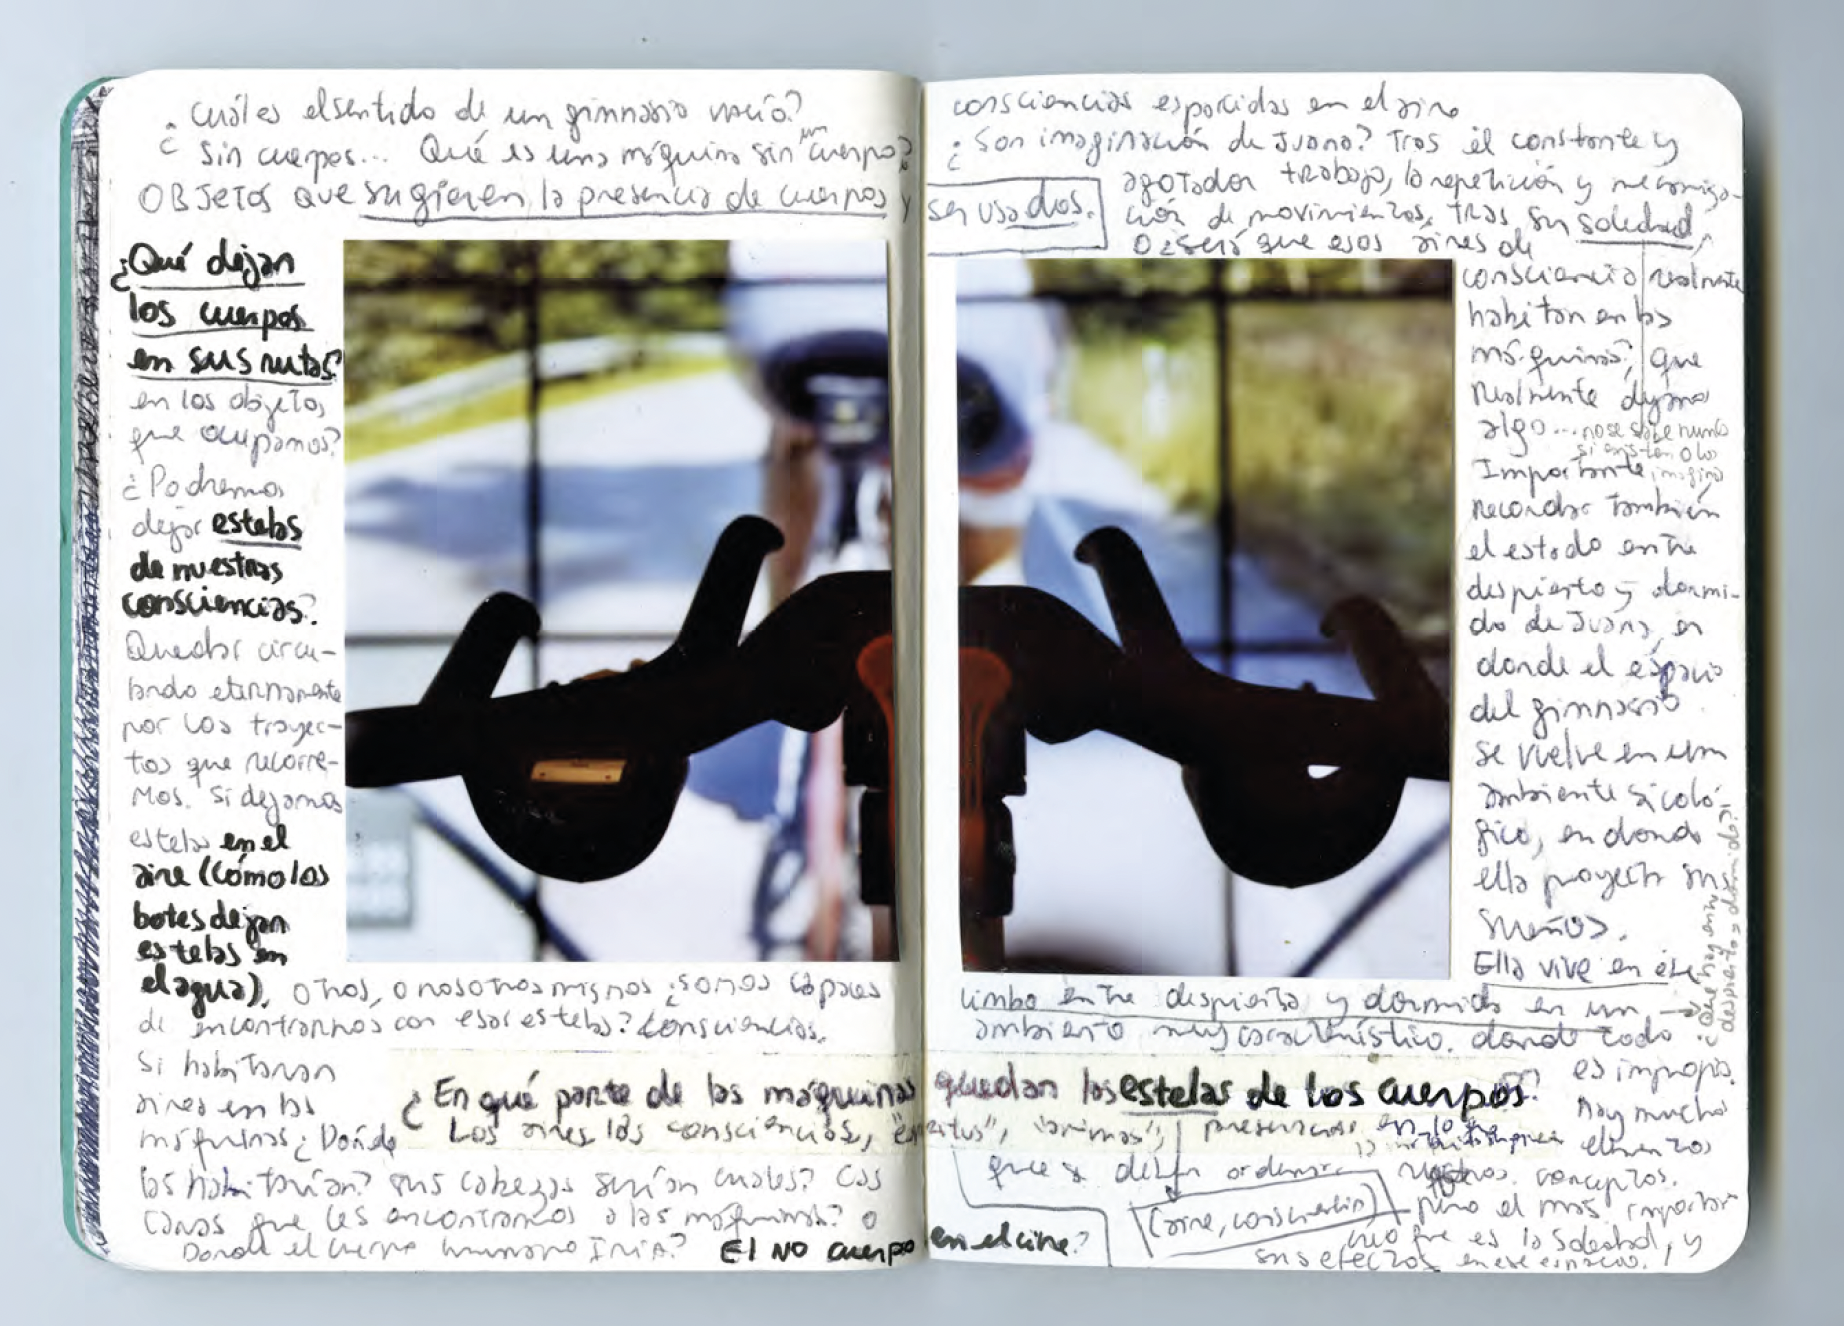 ¿Cuál es el sentido de un gimnasio vacío?
¿Sin cuerpos... Qué es una máquina sin un cuerpo?
OBJETOS que sugieren la presencia de cuerpos y
¿Qué dejan
los cuerpos
en sus rutas?
en los objetos
que ocupamos?
¿Podremos
dejar estelas
de nuestras
consciencias?
Quedar circu-
lando eternamente
por los trayec-
tos que recorre-
mos. Si dejamos
estelas en el
aire (cómo los
botes dejan
estelas en
el agua). Otros, o nosotros mismos ¿somos capaces
de encontrarnos con esas estelas? Consciencias.
Si habitaran
aires en las
máquinas ¿Dónde
las habitarían? sus cabezas serían cuales? Las
caras que les encontramos a las máquinas? o
Donde el cuerpo humano iría? El NO cuerpo
¿En qué parte de las máquinas quedan las estelas de los cuerpos?
Los aires las consciencias, "espíritus", "animas", presencias en lo que
en el cine?
consciencias esparcidas en el aire
¿Son imaginación de Juana? Tras el constante y
ser usados.
agotador trabajo, la repetición y mecaniza-
ción de movimientos, tras su soledad,
O ¿será que esos aires de
consciencia realmente
habitan en las
máquinas?, que
realmente dejamos
algo... no se sabe nunca
si existen o los
imagina
Importante
recordar también
el estado entre
despierto y dormi-
do de Juana, en
donde el espacio
del gimnasio
se vuelve en un
ambiente sicoló-
gico, en donde
ella proyecta sus
sueños.
Ella vive en ese
limbo entre despierta y dormida en un
ambiente muy característico. donde todo
¿Qué hay entre
despierto y dormido?
es impropio.
Hay muchos
elementos
que se deben ordenar
conceptos.
(aire, consciencia)
pero el más importan
que es la Soledad, y
sus efectos en ese espacio.